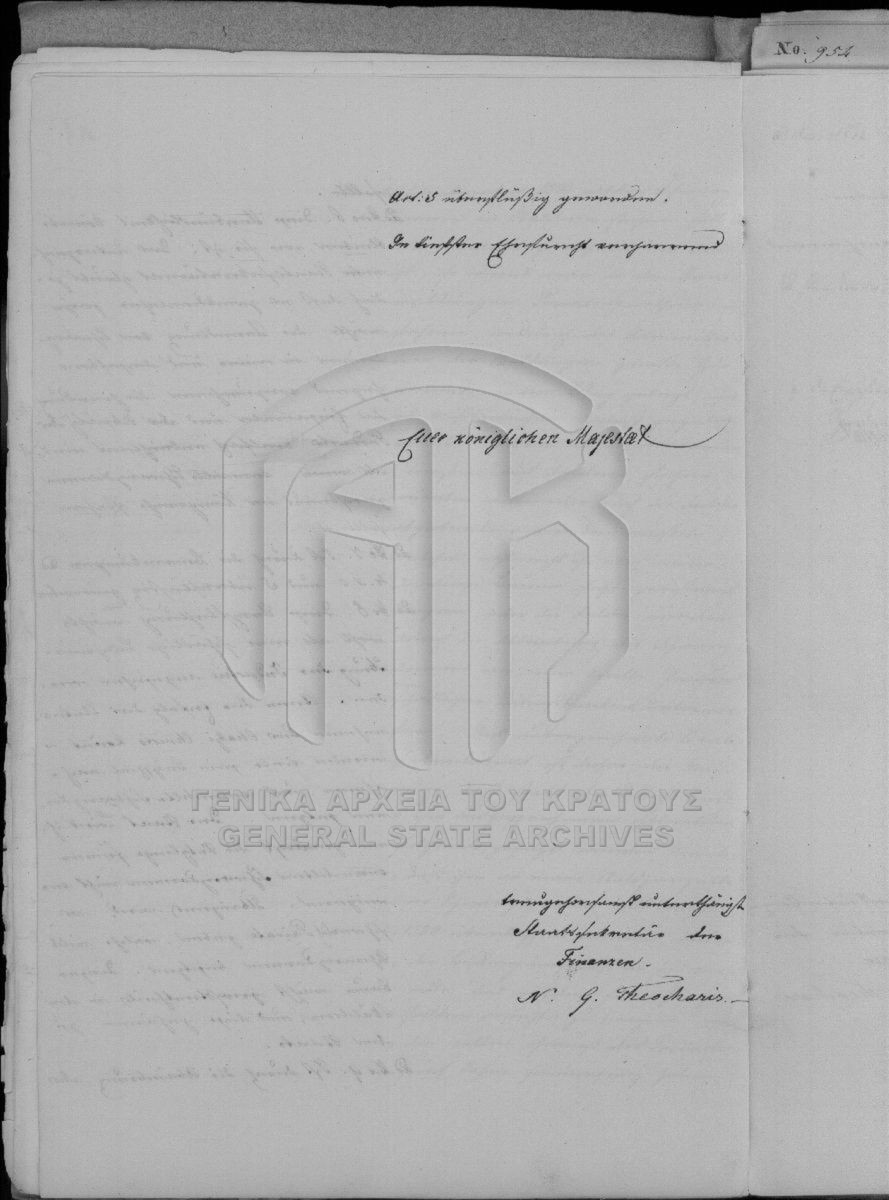 No. 952
Art: 5 überflüßig geworden.
In tiefster Ehrfurcht verharrend
Euer königlichen Majestæt
ΓΕΝΙΚΑ ΑΡΧΕΙΑ ΤΟΥ ΚΡΑΤΟΥΣ
GENERAL STATE ARCHIVES
treugehorsamst unterthänigst
Staatssekretär der
Finanzen.
N. G. Theocharis.